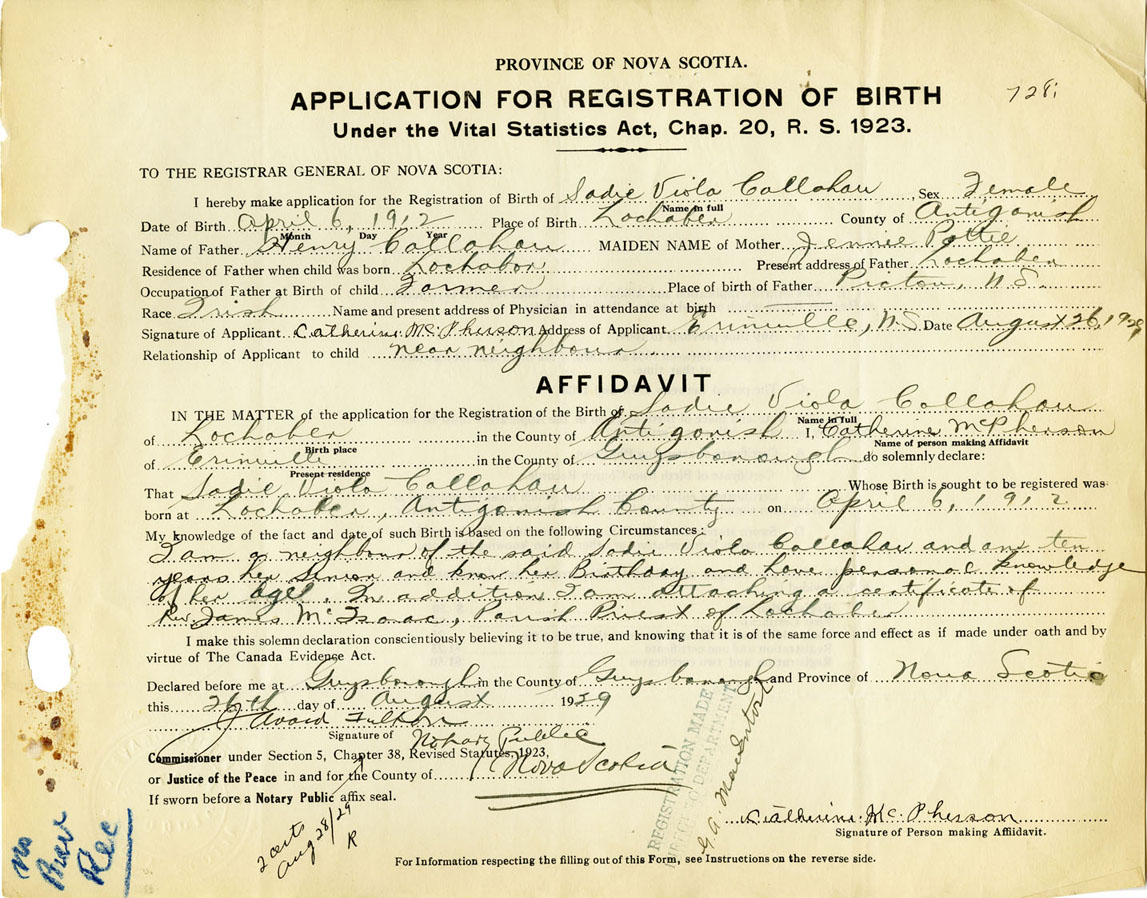 PROVINCE OF NOVA SCOTIA.
APPLICATION FOR REGISTRATION OF BIRTH
Under the Vital Statistics Act, Chap. 20, R. S. 1923.
TO THE REGISTRAR GENERAL OF NOVA SCOTIA:
I hereby make application for the Registration of Birth of Sadie Viola Callahan, Sex Female
Name in full
Date of Birth April 6, 1912 Place of Birth Lochaber County of Antigonish
Month Day Year
Name of Father Henry Callahan MAIDEN NAME of Mother Jennie Pottie
Residence of Father when child was born Lochabor Present address of Father Lochaber
Occupation of Father at Birth of child Farmer Place of birth of Father Pictou, N.S.
Race Irish Name and present address of Physician in attendance at birth
Signature of Applicant Catherine McPherson Address of Applicant Erinville, N.S. Date August 26, 1929
Relationship of Applicant to child near neighbour
AFFIDAVIT
IN THE MATTER of the application for the Registration of the Birth of Sadie Viola Callahan
Name in full
of Lochaber in the County of Antigonish I, Catherine McPherson
Birth place Name of person making Affidavit
of Erinville in the County of Guysborough do solemnly declare:
Present residence
That Sadie Viola Callahan Whose Birth is sought to be registered was
born at Lochaber, Antigonish County on April 6, 1912
My knowledge of the fact and date of such Birth is based on the following Circumstances:
I am a neighbour of the said Sadie Viola Callahan and am ten
years her senior and know her Birthday and have personal knowledge
of her age. In addition I am attaching a certificate of
Rev. James McIsaac, Parish Priest of Lochaber
I make this solemn declaration conscientiously believing it to be true, and knowing that it is of the same force and effect as if made under oath and by
virtue of The Canada Evidence Act.
Declared before me at Guysborough in the County of Guysborough and Province of Nova Scotia
this 26th day of August 1929
J Avard Fulton
Signature of Notary Public
Commissioner under Section 5, Chapter 38, Revised Statutes, 1923,
or Justice of the Peace in and for the County of Nova Scotia
If sworn before a Notary Public affix seal.
Catherine McPherson
Signature of Person making Affidavit.
REGISTRATION MADE
DIRECT TO DEPARTMENT
2 certs
Aug 28/29
R
For Information respecting the filling out of this Form, see Instructions on the reverse side.
no
Prev
Rec